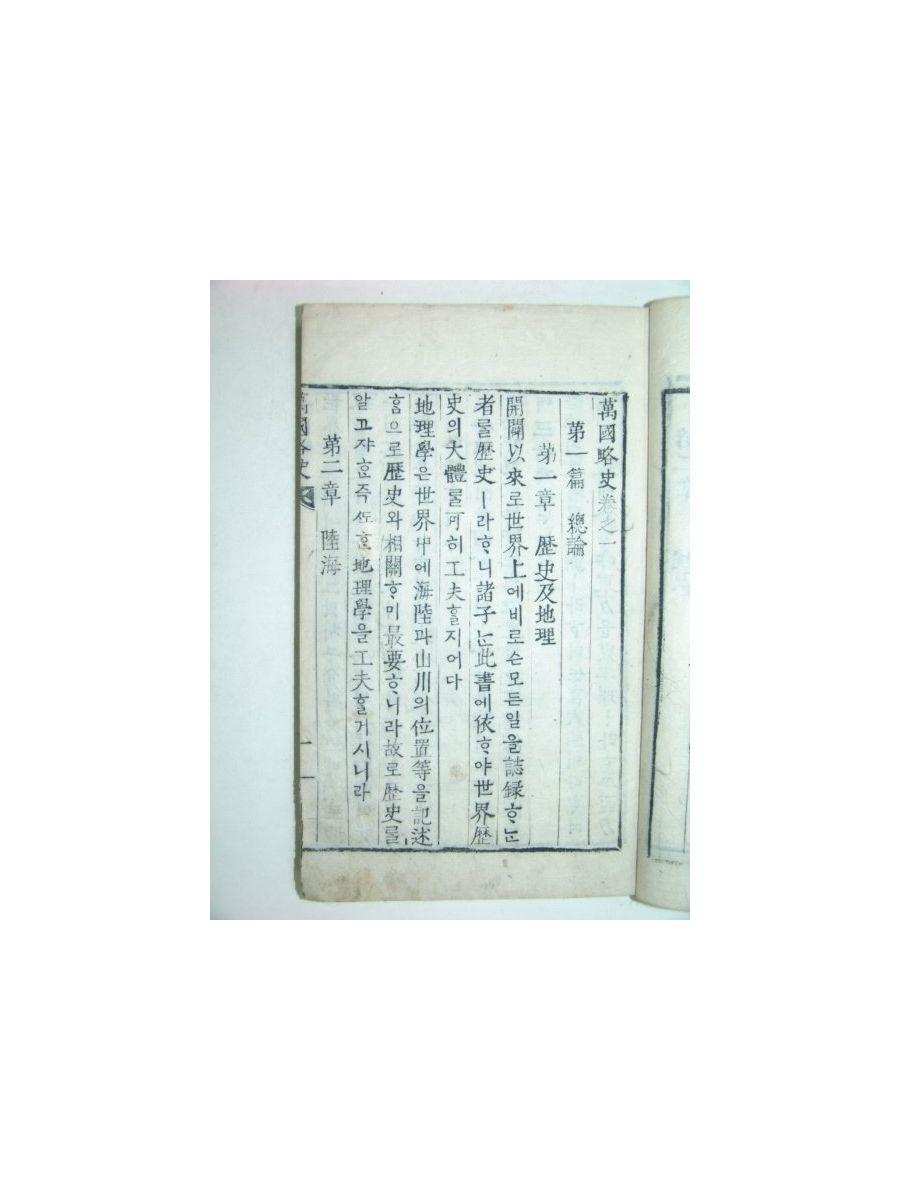 萬國略史卷之一
第一篇 總論
第一章 歷史及地理
開闢以來로世界上에비로슨모든일을誌録ᄒᆞᄂᆞᆫ
者ᄅᆞᆯ歷史ㅣ라ᄒᆞᄂᆞ니諸子ᄂᆞᆫ此書에依ᄒᆞ야世界歷
史의大體ᄅᆞᆯ可히工夫ᄒᆞᆯ지어다
地理學은世界中에海陸과山川의位置等을記述
ᄒᆞᆷ으로歷史와相關ᄒᆞ미最要ᄒᆞ니라故로歷史ᄅᆞᆯ
알고쟈ᄒᆞᆫ즉ᄯᅩᄒᆞᆫ地理學을工夫ᄒᆞᆯ거시니라
第二章 陸海
萬國略史 一